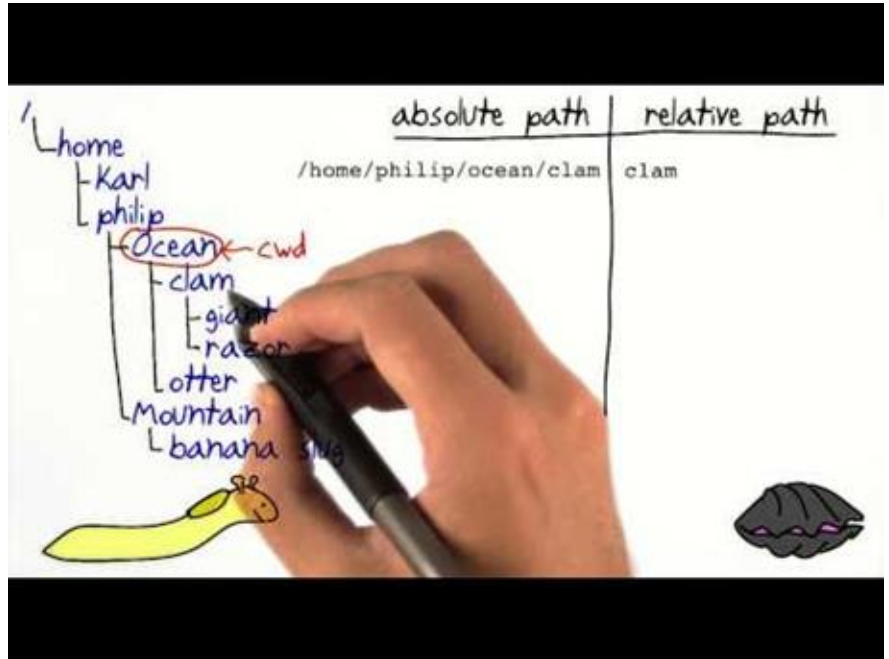 /
home
Karl
philip
Ocean ← cwd
clam
giant
razor
otter
Mountain
banana slug
absolute path | relative path
/home/philip/ocean/clam | clam